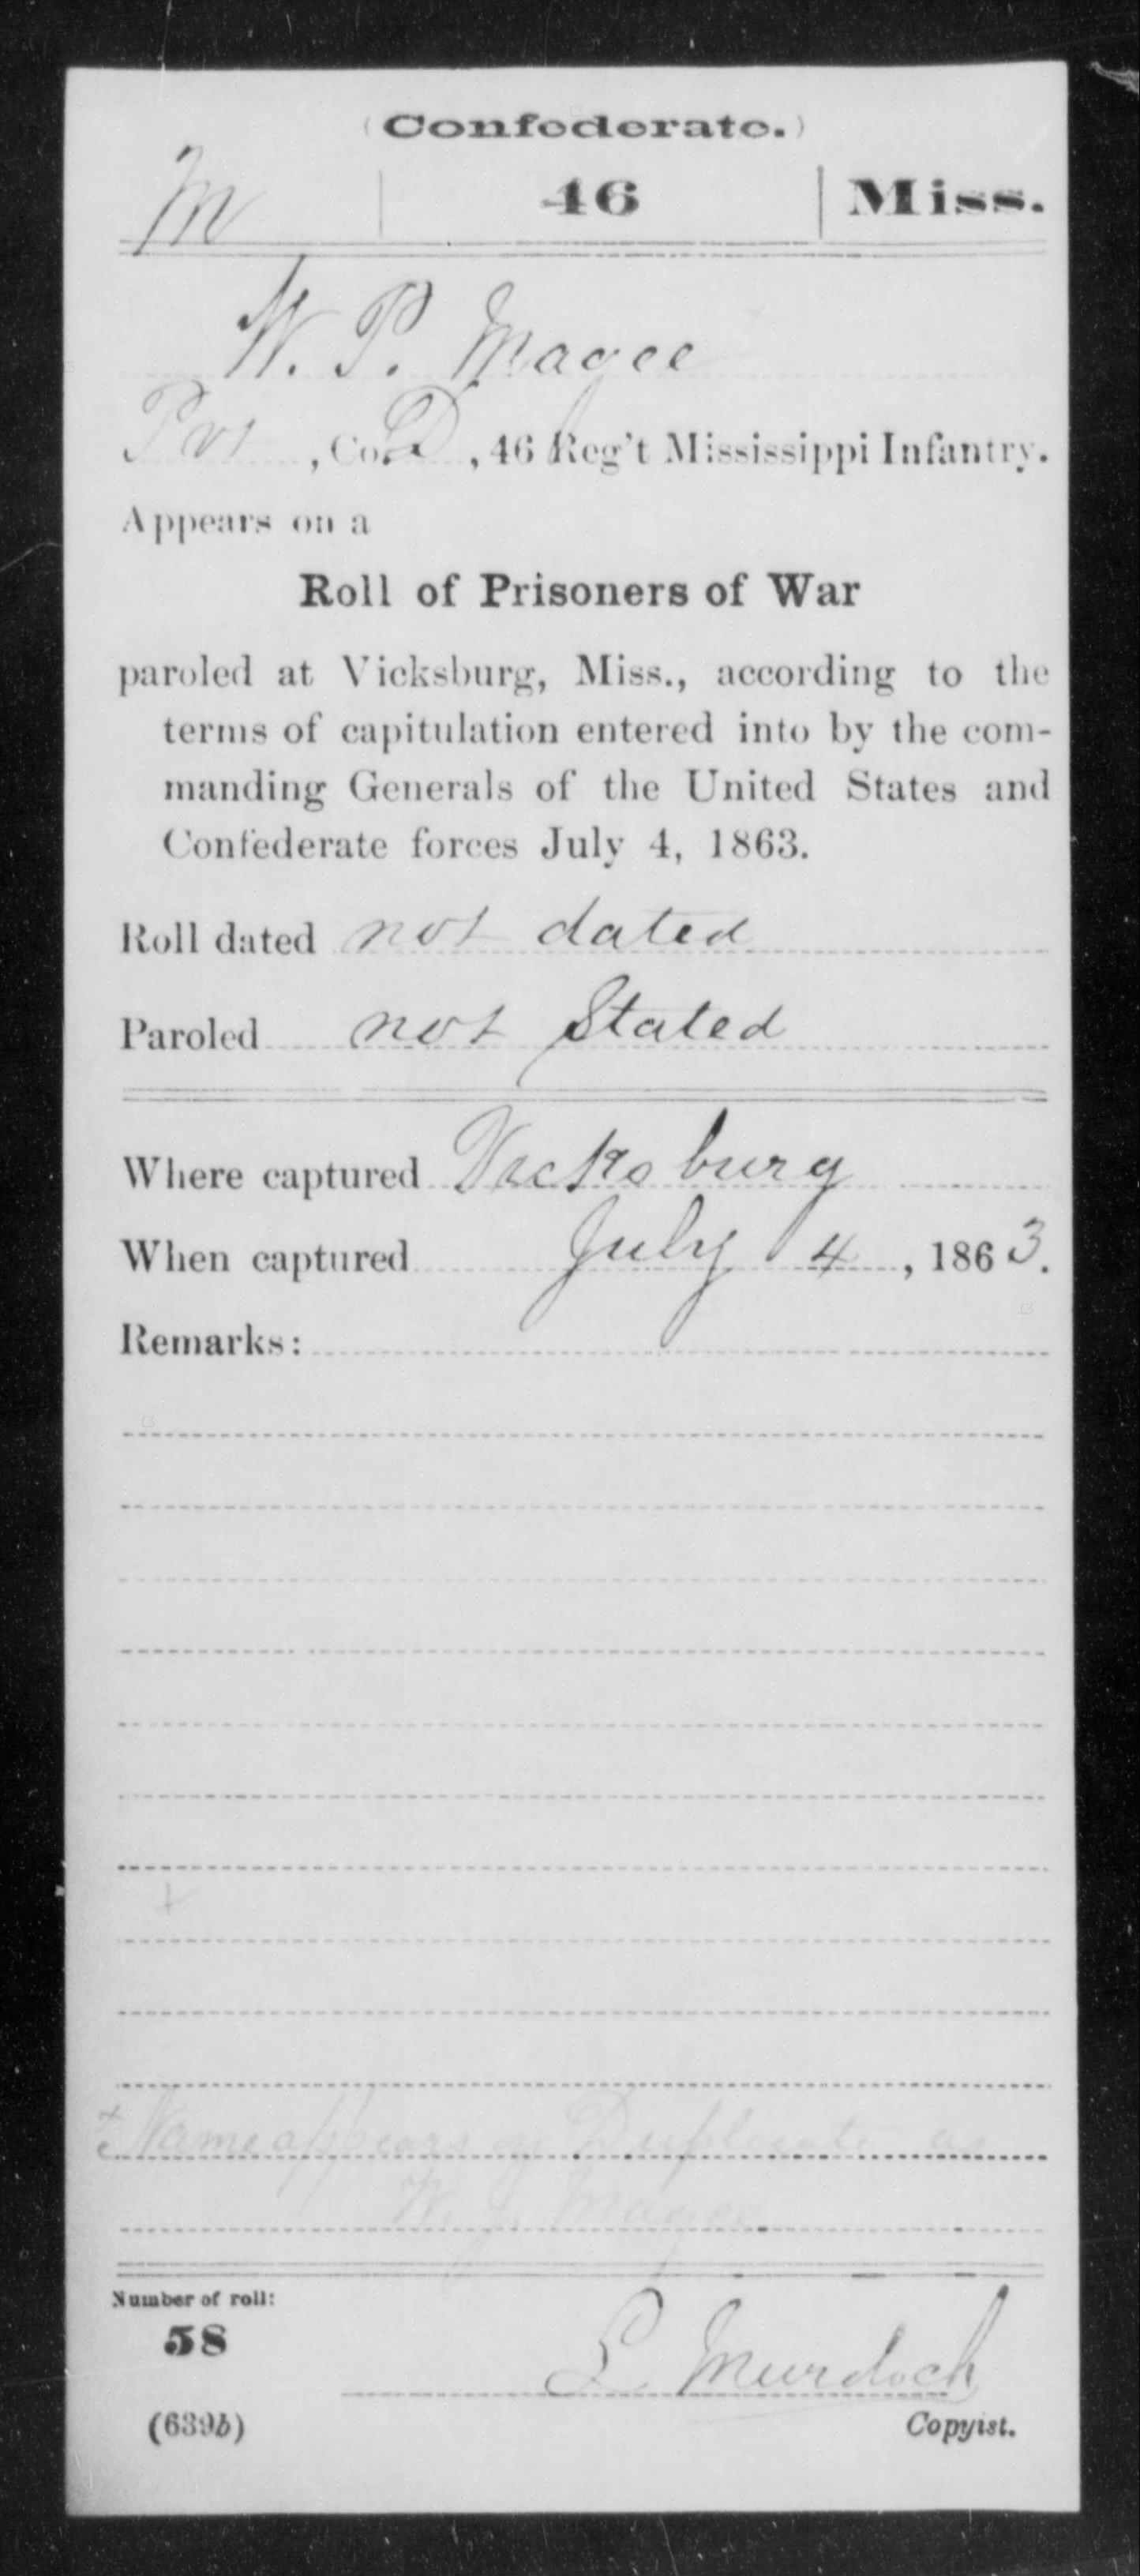 (Confederate.)
M | 46 | Miss.
W. P. Magee
Pvt, Co. D, 46 Reg't Mississippi Infantry.
Appears on a
Roll of Prisoners of War
paroled at Vicksburg, Miss., according to the
terms of capitulation entered into by the com-
manding Generals of the United States and
Confederate forces July 4, 1863.
Roll dated not dated
Paroled not Stated
Where captured Vicksburg
When captured July 4, 1863.
Remarks:
Name appears on Duplicate as
W. Magee
Number of roll:
58
L Murdoch
(639b)
Copyist.